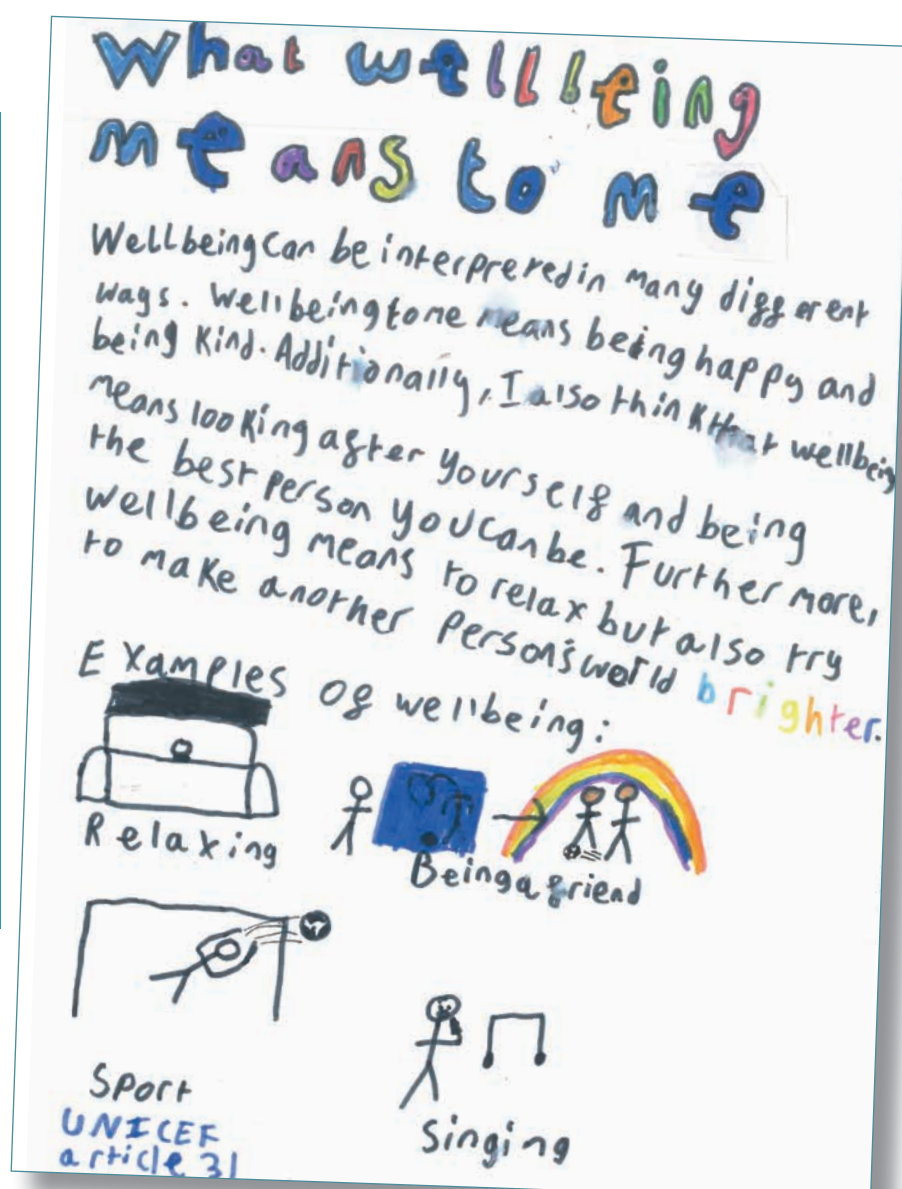 What wellbeing
means to me
Wellbeing can be interpreted in many different
ways. Wellbeing to me means being happy and
being kind. Additionally, I also think that wellbeing
means looking after yourself and being
the best person you can be. Furthermore,
wellbeing means to relax but also try
to make another person's world brighter.
Examples of wellbeing:
Relaxing
Being a friend
Sport
Singing
UNICEF
article 31